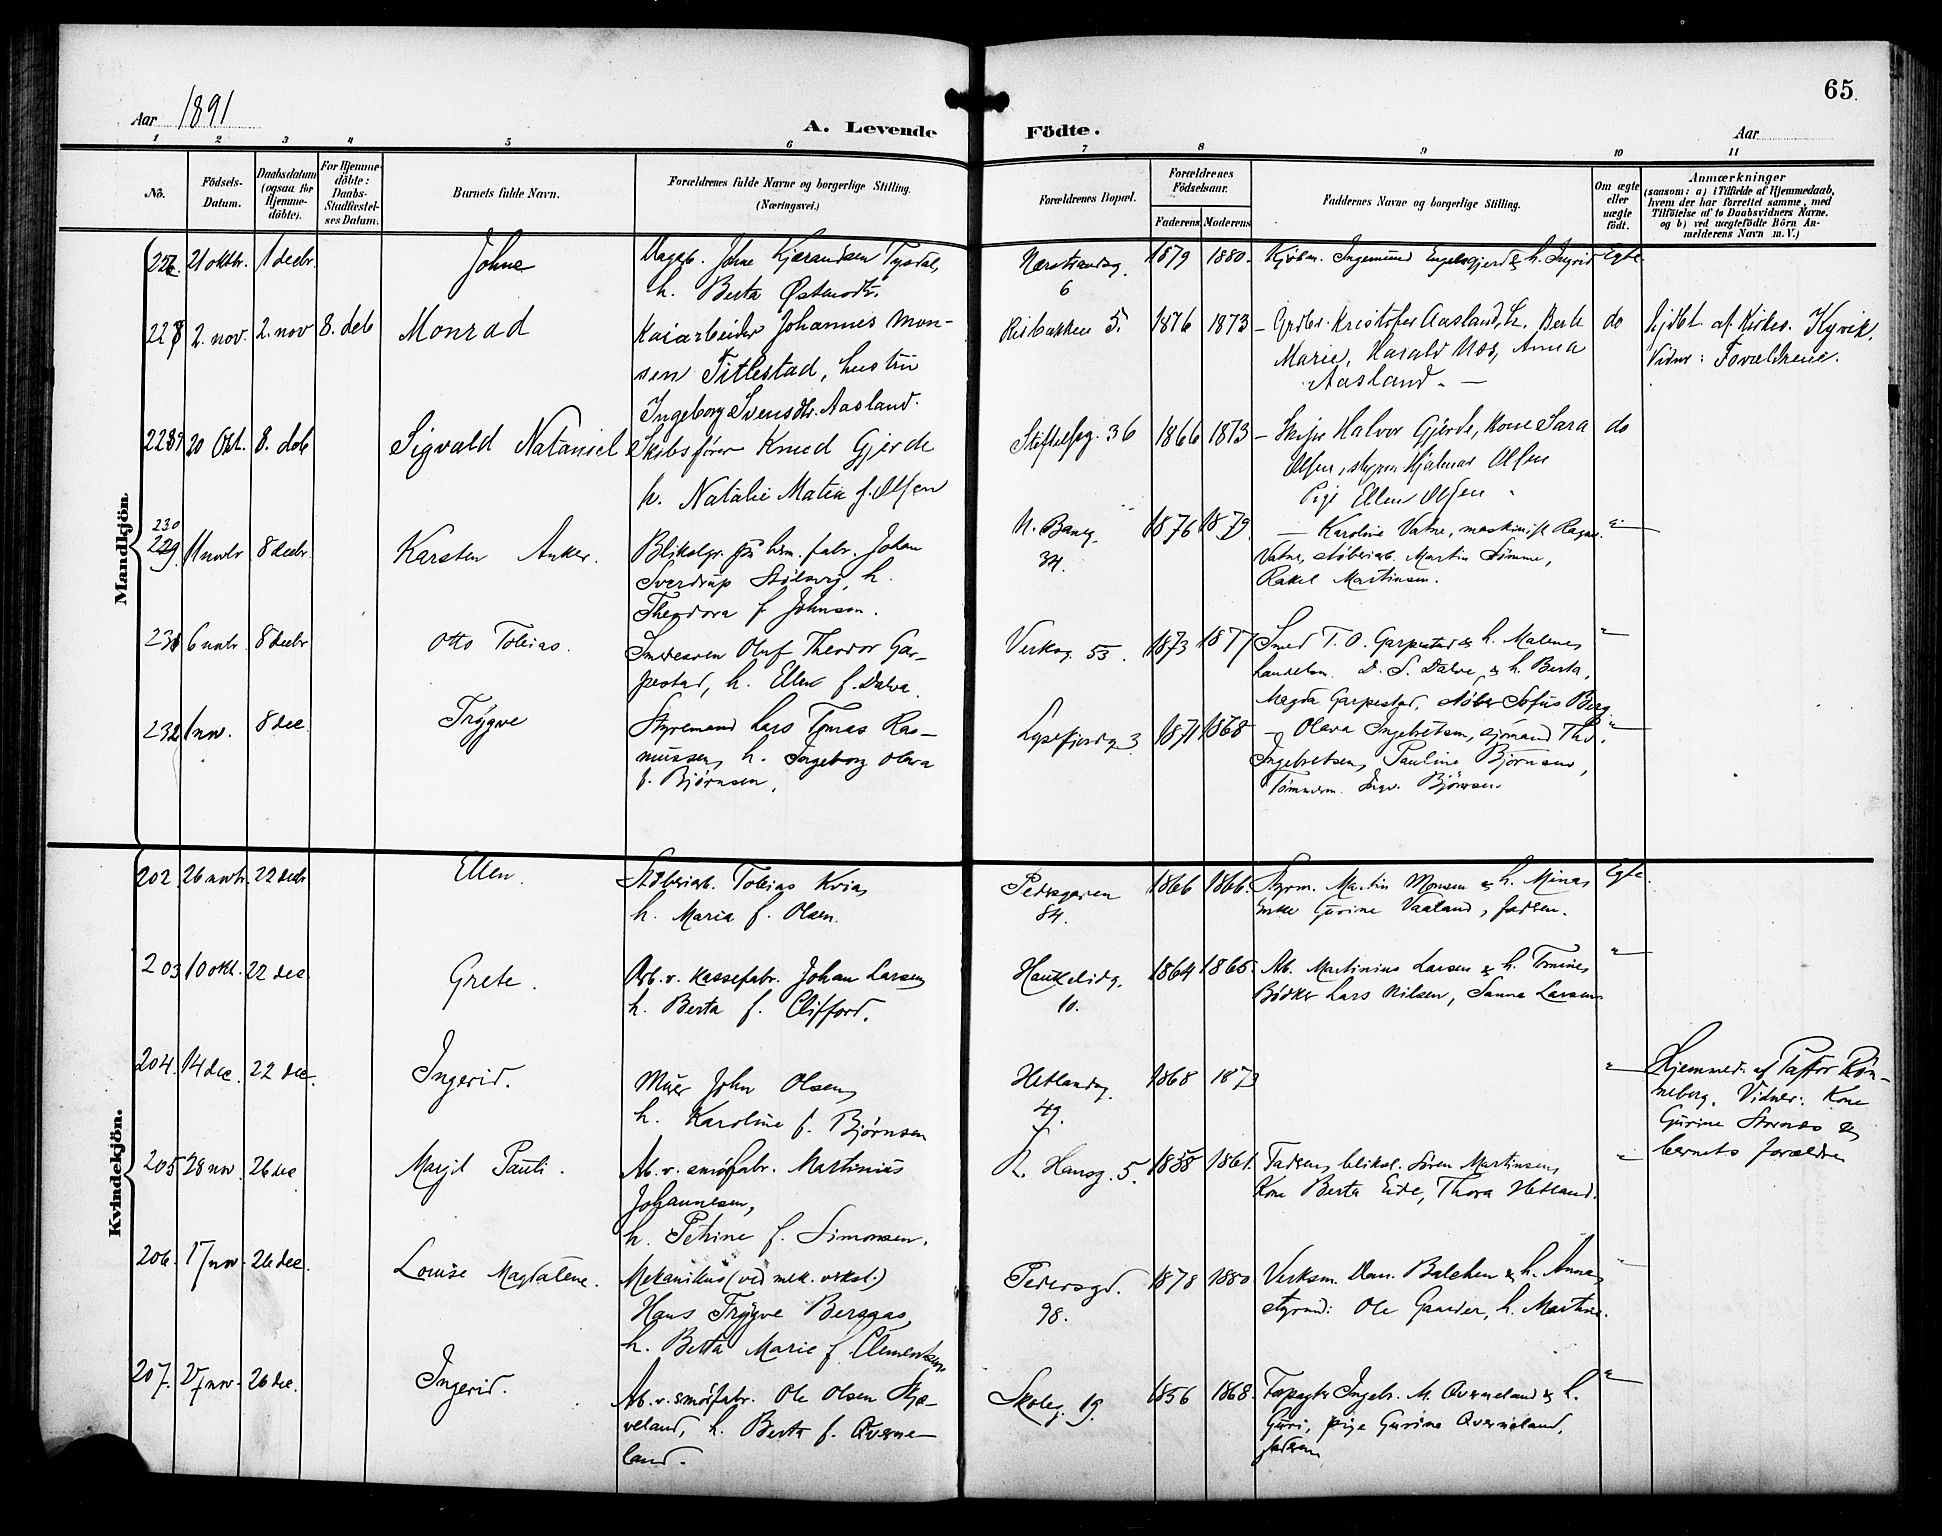 65.
Aar 1891
A. Levende Födte.
Aar
1 2 3 4 5 6 7 8 9 10 11
No.
Födsels-Datum.
Daabsdatum (ogsaa for Hjemme-döbte).
For Hjemme-döbte: Daabs-Stadfæstel-ses Datum.
Barnets fulde Navn.
Forældrenes fulde Navne og borgerlige Stilling.
(Næringsvei.)
Forældrenes Bopæl.
Forældrenes Födselsaar.
Faderens Moderens
Faddernes Navne og borgerlige Stilling.
Om ægte eller uægte födt.
Anmærkninger
(saasom: a) i Tilfælde af Hjemmedaab, hvem der har forrettet samme, med Tilföielse af to Daabsvidners Navne, og b) ved uægtefödte Börn Anmelderens Navn m. V.)
Mandkjön.
21 oktbr. 1 decbr. Johne
Johne Kjærandsen Tysdal,
h. Berta
6 1879 1880. Ingemund h. Ingrid Egte
2. nov. 2. nov 8. deb Monrad
Kaiarbeider Johannes Mon-
sen Tittestad, hustru
Ingeborg Svensdtr. Aasland.
5. 1876 1873 Kristofer Aasland, h. Berte
Marie, Harald Næs, Anna
Aasland. do
af Kirkes. Kyvik.
Vidner: Forældrene.
20 Okt. 8. deb Sigvald Nataniel
Skibsfører Knud Gjerde
h. Natalie Matea f. Olsen
36 1866 1873 Halvor Gjerde, Kone Sara
Olsen, styrm Hjalmar Olsen
Pige Ellen Olsen do
230 8 decbr. Karsten Anker.
fabr. Johan
Sverdrup h.
Theodora f. Johnson.
34. 1876 1879. Karoline Vatne, maskinist
Vatne, støberiarb. Martin Sømme,
Rakel Martinsen. "
231 6 novbr 8 decbr Otto Tobias.
Smedsven Oluf Theodor Gar-
pestad, h. Ellen f. Dalva.
Verksg. 53. 1873 1877 Smed T. O. Garpestad & h. Malene,
D. S. Dalva & h. Berta,
Magda Garpestad, støber Sofus Berg "
232 1 nov. 8 dec Trygve
Styremand Lars Tomas Ras-
mussen, h. Ingeborg Olava
f. Bjørnsen,
Lysefjordg 3 1871 1868 Olava Ingebretsen, sjömand
Ingebretsen, Pauline Björnsen,
Tømmerm. Björnsen "
Kvindekjön.
202. 26 novbr. 22 decbr Ellen.
Støberiarb. Tobias Kvia,
h. Maria f. Olsen.
Pedersgaden
84. 1866 1866. Styrm. Martin Monsen & h. Mina,
Enke Gurine Vaaland, fadren. Egte.
203 10 okt. 22 dec Grete.
Arb. v. kassefabr. Johan Larsen,
h. Berta f. Clifford.
Haukelidg.
10. 1864 1865. Ab. Martinius Larsen & h.
Bödker Lars Nilsen, Sanna Larsen "
204. 14 dec. 22 dec. Ingerid.
Murer John Olsen,
h. Karoline f. Bjørnsen
Hetlandsg.
49. 1868 1873 "
Hjemmed. af Pastor Røn-
neberg. Vidner: Kone
Gurine &
barnets forældre
205 28 nov 26 dec Margit Pauli.
Ab. v. smörfabr. Martinius
Johannesen,
h. Petrine f. Simonsen.
R. Hansg. 5. 1858 1861. Fadren, bliksl. Søren Martinsen,
Kone Berta Eide, Thora Hetland. "
206. 17 nov 26 dec. Louise Magdalene.
Mekanikus (ved mek. verkst.)
Hans Trygve Bersaas,
h. Berta Marie f. Clementsen
Pedersgd.
98. 1878 1880 Verksm. Balchen & h. Anna,
styrmd: Ole h. Martine. "
207. 27 nov. 26 dec. Ingerid.
Ab. v. smörfabr. Ole Olsen Skjæ-
veland, h. Berta f. Qverne-
land.
Skoleg. 19. 1856 1868. Forpagter Ingebr. M. Qverneland & h.
Guri, pige Gurine Qverneland,
fadren "